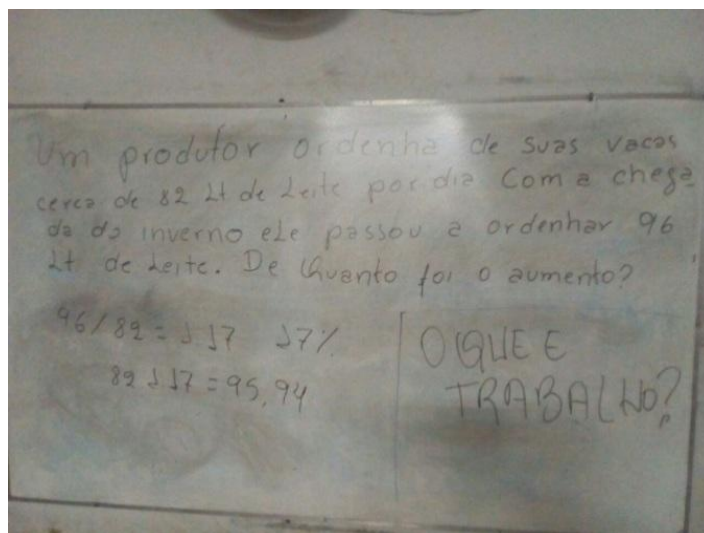 Um produtor ordenha de suas vacas
cerca de 82 Lt de Leite por dia Com a chega
da do inverno ele passou a ordenhar 96
Lt de Leite. De Quanto foi o aumento?
96/82 = 1 17 17%
82 1 17 = 95,94
O QUE E
TRABALHO?